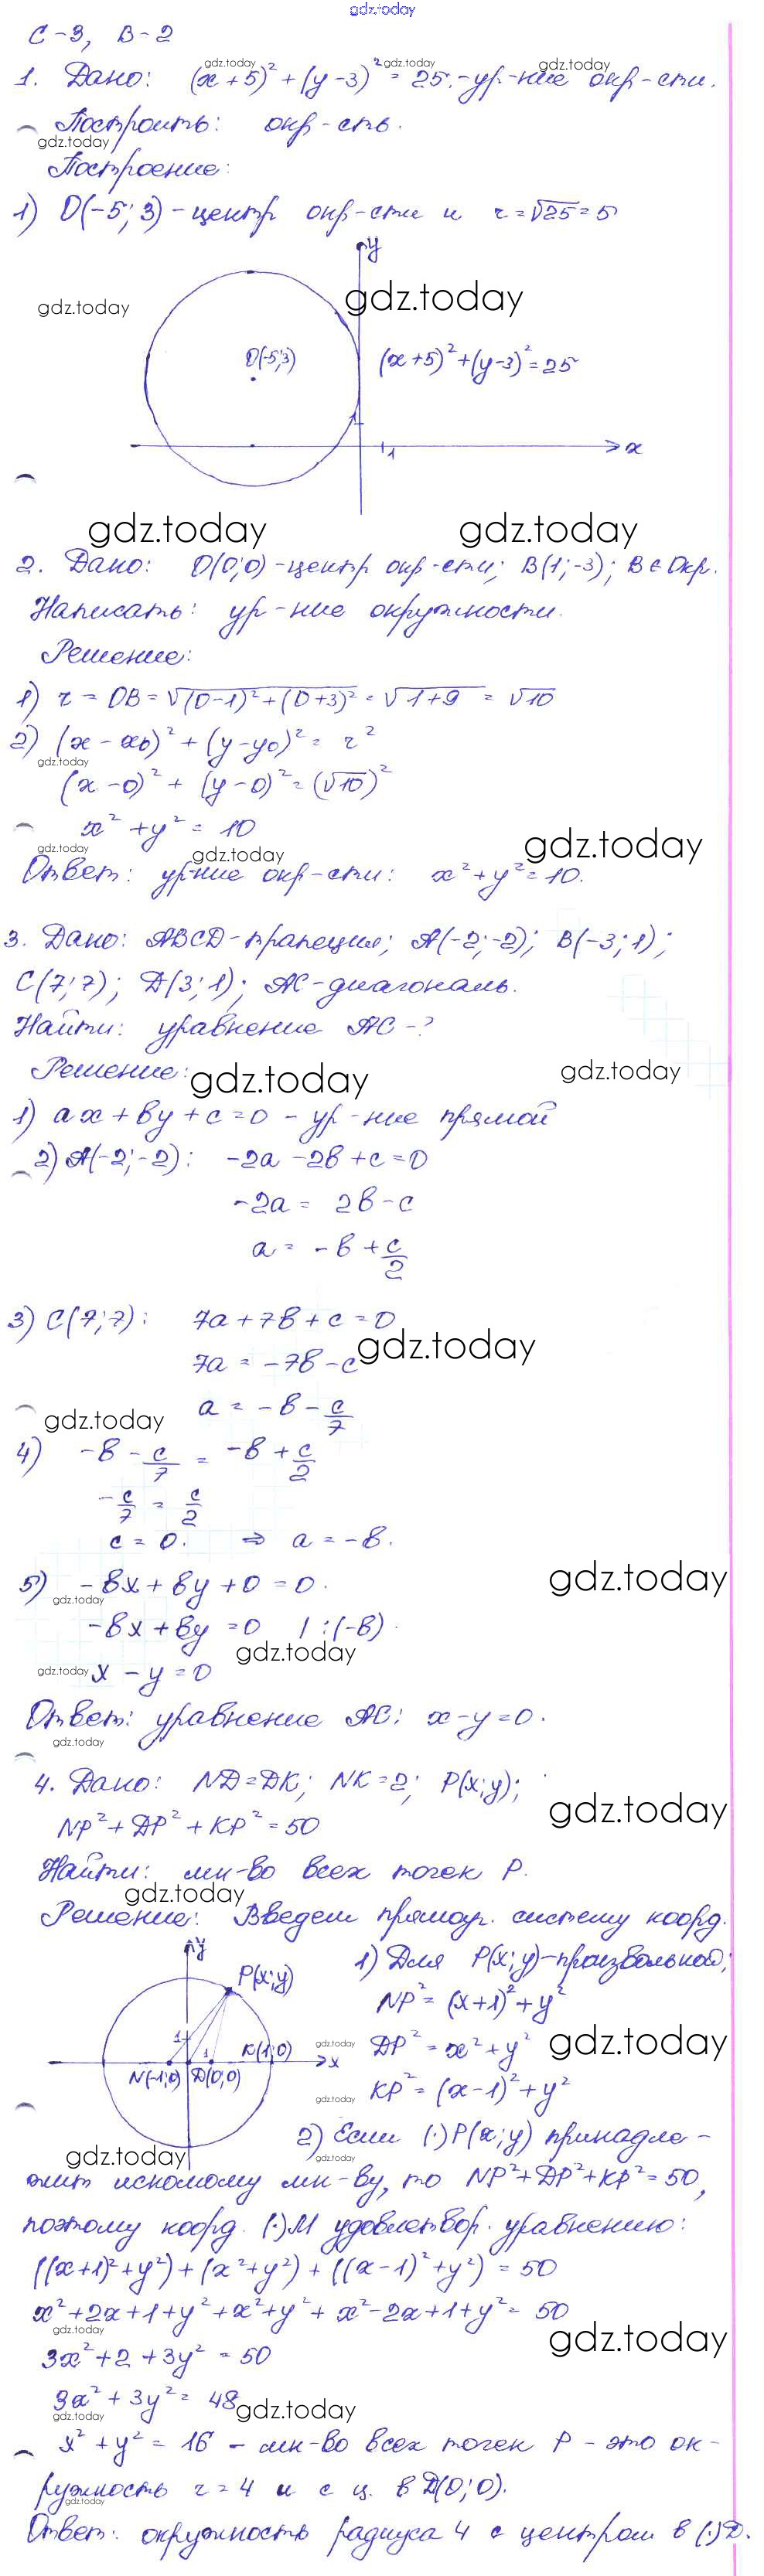 gdz.today
С-3, В-2
gdz.today gdz.today gdz.today
1. Дано: (x+5)²+(y-3)²=25.-ур-ние окр-сти.
Построить: окр-сть.
gdz.today
Построение:
1) O(-5; 3)-центр окр-сти и r=√25=5
y
gdz.today gdz.today
O(-5;3) (x+5)²+(y-3)²=25
1 x
gdz.today gdz.today
2. Дано: O(0;0)-центр окр-сти; B(1;-3); B∈Окр.
Написать: ур-ние окружности.
Решение:
1) r = OB = √(0-1)²+(0+3)² = √1+9 = √10
2) (x-x₀)²+(y-y₀)²= r²
gdz.today
(x-0)²+(y-0)²=(√10)²
x²+y²= 10
gdz.today gdz.today gdz.today
Ответ: ур-ние окр-сти: x²+y²=10.
3. Дано: ABCD-трапеция; A(-2;-2); B(-3;1);
C(7;7); D(3;1); AC-диагональ.
Найти: уравнение AC-?
Решение:
gdz.today gdz.today
1) ax+by+c=0 - ур-ние прямой
2) A(-2;-2): -2a-2b+c=0
-2a = 2b-c
a = -b+c/2
3) C(7;7): 7a+7b+c=0
gdz.today
7a = -7b-c
a = -b-c/7
gdz.today
4) -b-c/7 = -b+c/2
-c/7 = c/2
c = 0. ⇒ a=-b.
5) -bx+by+0=0.
gdz.today gdz.today
-bx+by=0 | :(-b)
gdz.today
gdz.today x-y=0
Ответ: уравнение AC: x-y=0.
gdz.today
4. Дано: ND=DK; NK=2; P(x;y);
gdz.today
NP²+DP²+KP²=50
Найти: мн-во всех точек P.
gdz.today
Решение: Введем прямоуг. систему коорд.
y
P(x;y)
1
1
K(1;0)
x
N(-1;0) D(0;0)
1) Для P(x;y)-произвольной;
NP²= (x+1)²+y²
gdz.today DP²=x²+y² gdz.today
gdz.today KP²=(x-1)²+y²
2) Если (·)P(x;y) принадле-
gdz.today gdz.today
жит искомому мн-ву, то NP²+DP²+KP²=50,
поэтому коорд. (·)M удовлетвор. уравнению:
((x+1)²+y²)+(x²+y²)+((x-1)²+y²)=50
x²+2x+1+y²+x²+y²+x²-2x+1+y²=50
gdz.today gdz.today
3x²+2+3y²=50
3x²+3y²=48
gdz.today gdz.today
x²+y²=16 - мн-во всех точек P - это ок-
ружность r=4 и с ц. в D(0;0).
gdz.today
Ответ: окружность радиуса 4 с центром в (·)D.